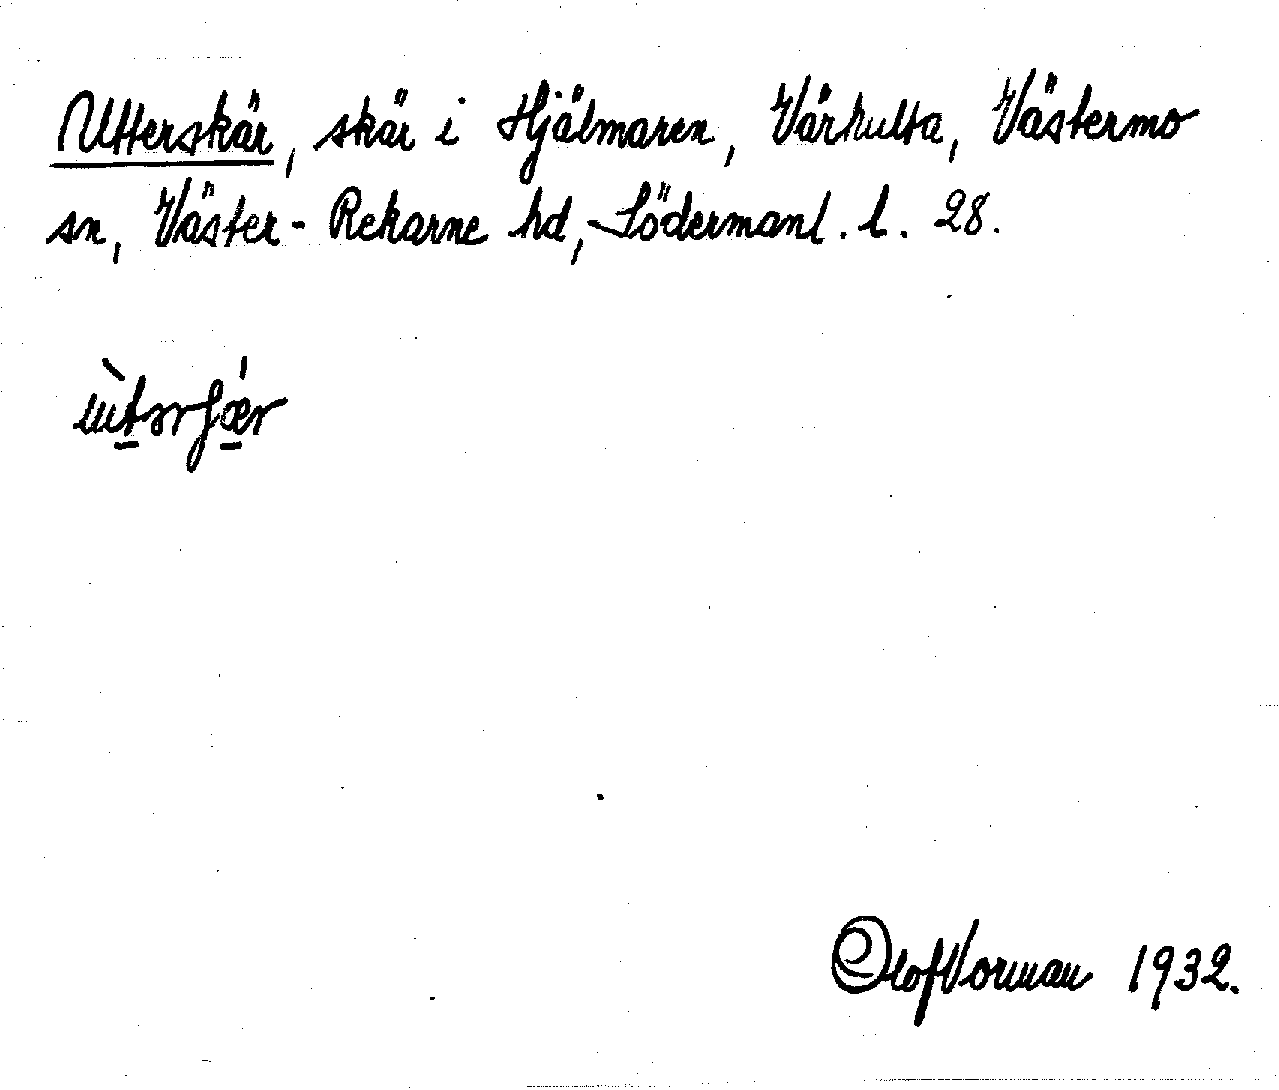 Utterskär, skär i Hjälmaren, Vårhulta, Västermo
sn, Väster-Rekarne hd, Södermanl. l. 28.
Olof Vorman 1932.